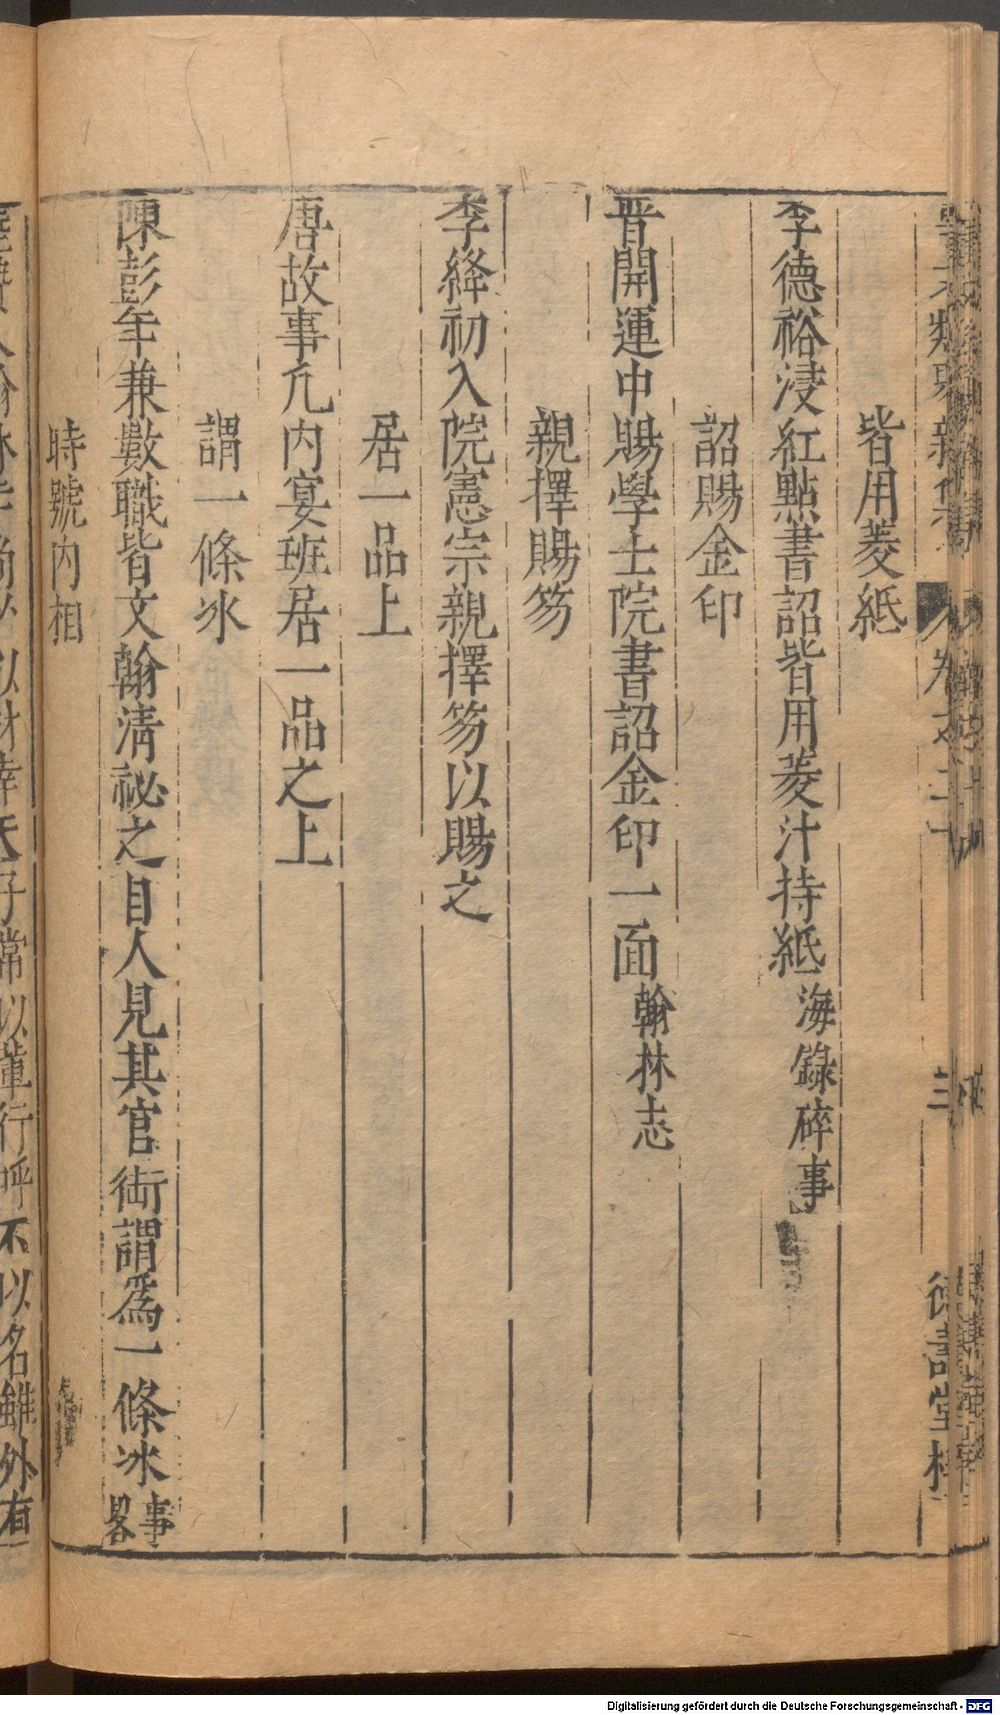 皆用菱紙
李德裕浸紅點書詔皆用菱汁持紙海錄碎事
詔賜金印
晋開運中賜學士院書詔金印一面翰林志
親擇賜笏
李絳初入院憲宗親擇笏以賜之
居一品上
唐故事凢内宴班居一品之上
謂一條冰
陳彭年兼數職皆文翰清祕之目人見其官銜謂爲一條冰事畧
時號内相
子常以軰行呼不以名雖外有
Digitalisierung gefördert durch die Deutsche Forschungsgemeinschaft - DFG